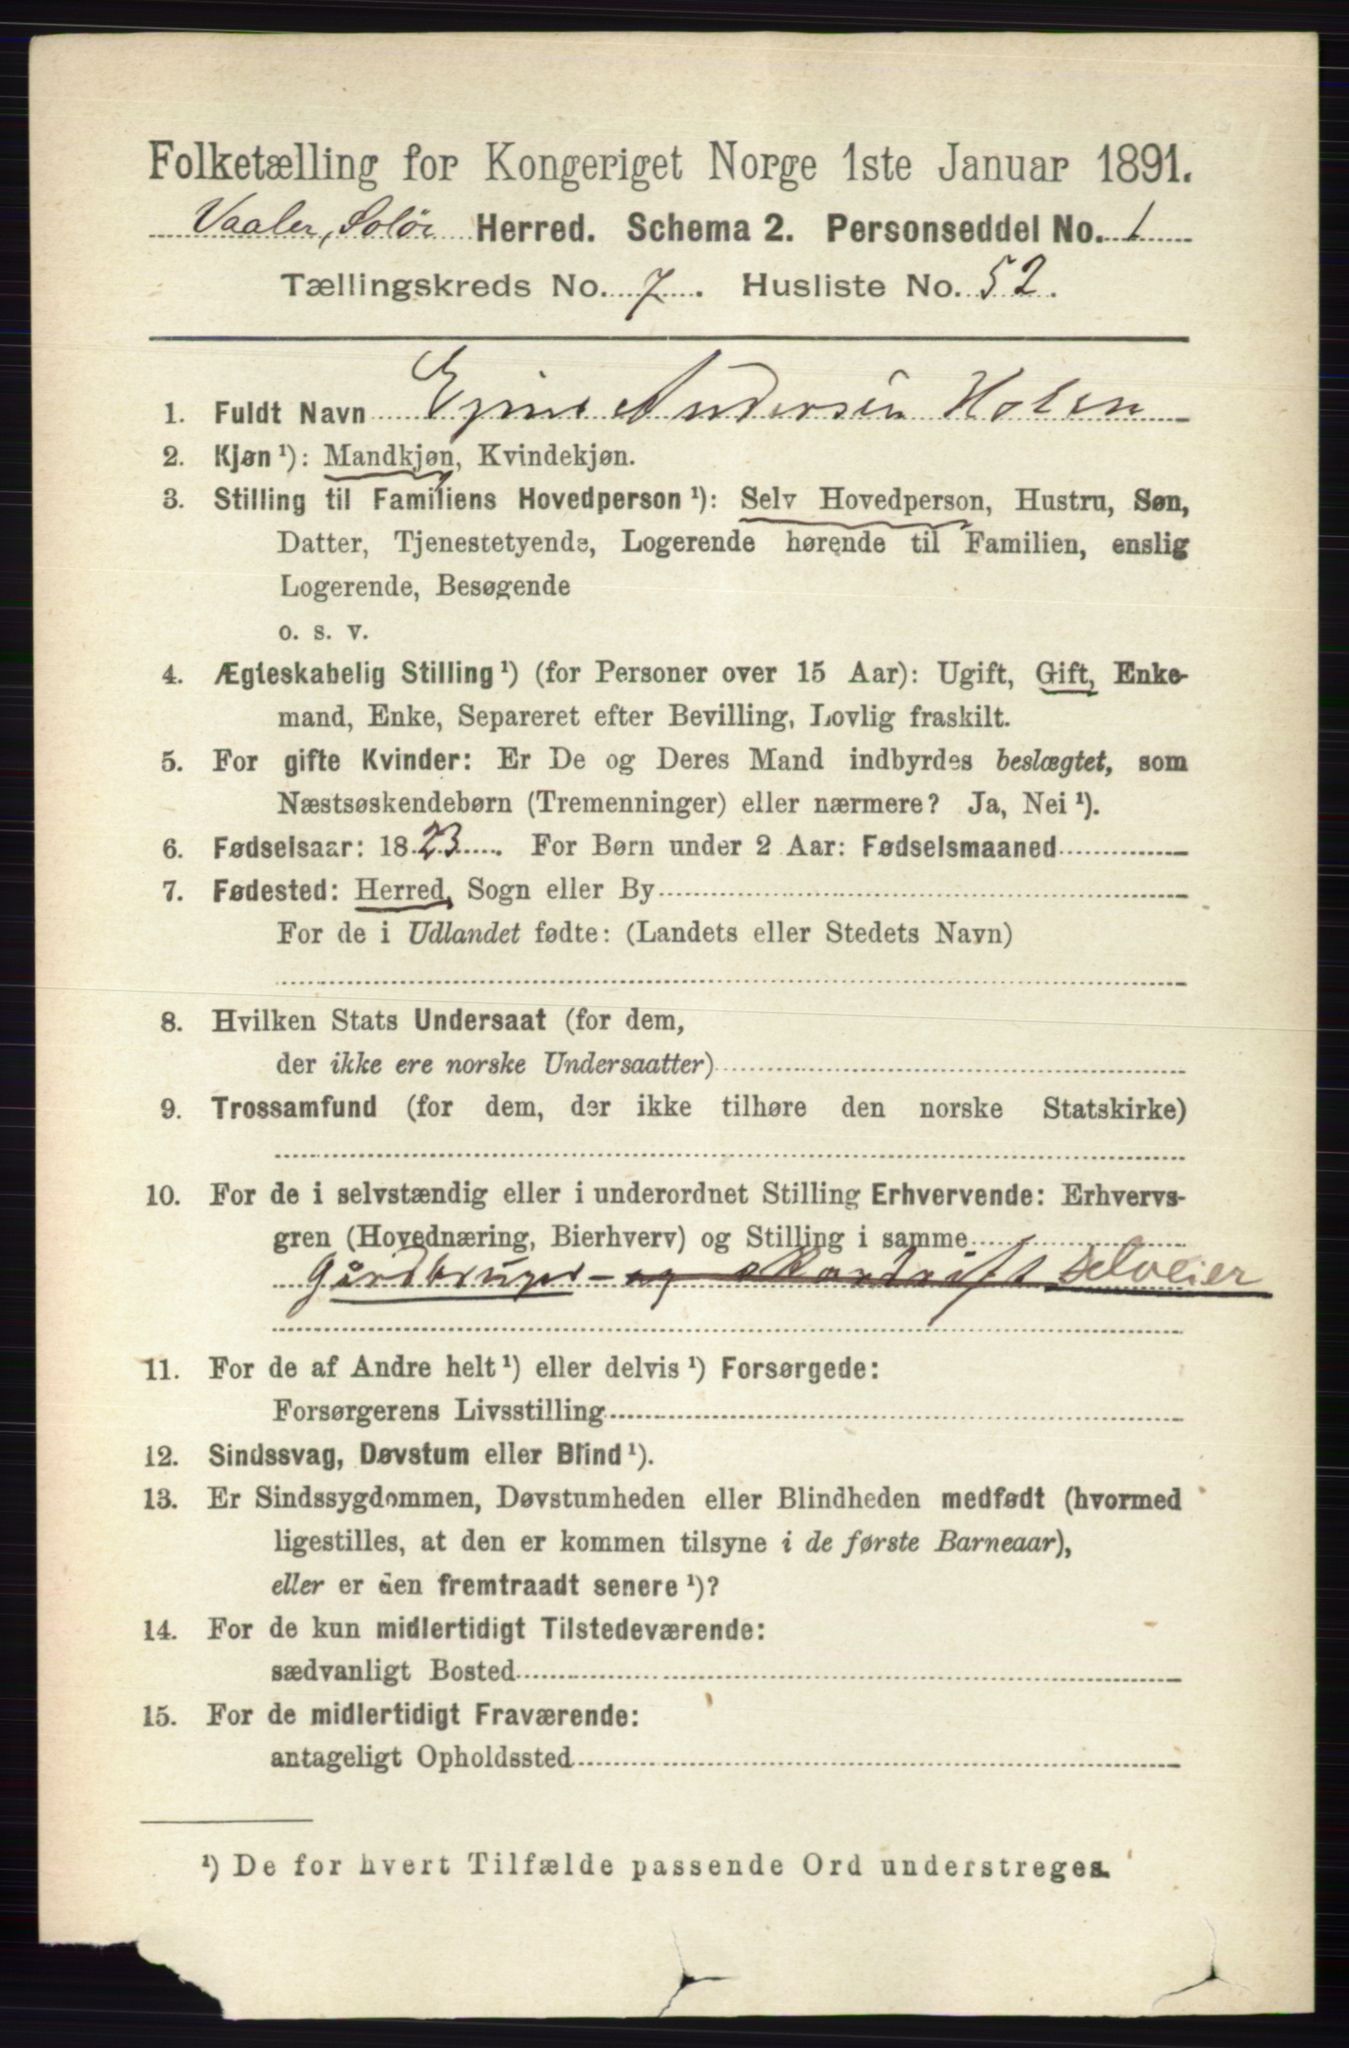 Folketælling for Kongeriget Norge 1ste Januar 1891.
Vaaler, Solør Herred. Schema 2. Personseddel No. 1
Tællingskreds No. 7. Husliste No. 52.
1. Fuldt Navn Andersen Holen
2. Kjøn ¹): Mandkjøn, Kvindekjøn.
3. Stilling til Familiens Hovedperson ¹): Selv Hovedperson, Hustru, Søn,
Datter, Tjenestetyende, Logerende hørende til Familien, enslig
Logerende, Besøgende
o. s. v.
4. Ægteskabelig Stilling ¹) (for Personer over 15 Aar): Ugift, Gift, Enke-
mand, Enke, Separeret efter Bevilling, Lovlig fraskilt.
5. For gifte Kvinder: Er De og Deres Mand indbyrdes beslægtet, som
Næstsøskendebørn (Tremenninger) eller nærmere? Ja, Nei ¹).
6. Fødselsaar: 1823. For Børn under 2 Aar: Fødselsmaaned
7. Fødested: Herred, Sogn eller By
For de i Udlandet fødte: (Landets eller Stedets Navn)
8. Hvilken Stats Undersaat (for dem,
der ikke ere norske Undersaatter)
9. Trossamfund (for dem, der ikke tilhøre den norske Statskirke)
10. For de i selvstændig eller i underordnet Stilling Erhvervende: Erhvervs-
gren (Hovednæring, Bierhverv) og Stilling i samme
Gårdbruger og selveier
11. For de af Andre helt ¹) eller delvis ¹) Forsørgede:
Forsørgerens Livsstilling
12. Sindssvag, Døvstum eller Blind ¹).
13. Er Sindssygdommen, Døvstumheden eller Blindheden medfødt (hvormed
ligestilles, at den er kommen tilsyne i de første Barneaar),
eller er den fremtraadt senere ¹)?
14. For de kun midlertidigt Tilstedeværende:
sædvanligt Bosted
15. For de midlertidigt Fraværende:
antageligt Opholdssted
¹) De for hvert Tilfælde passende Ord understreges.